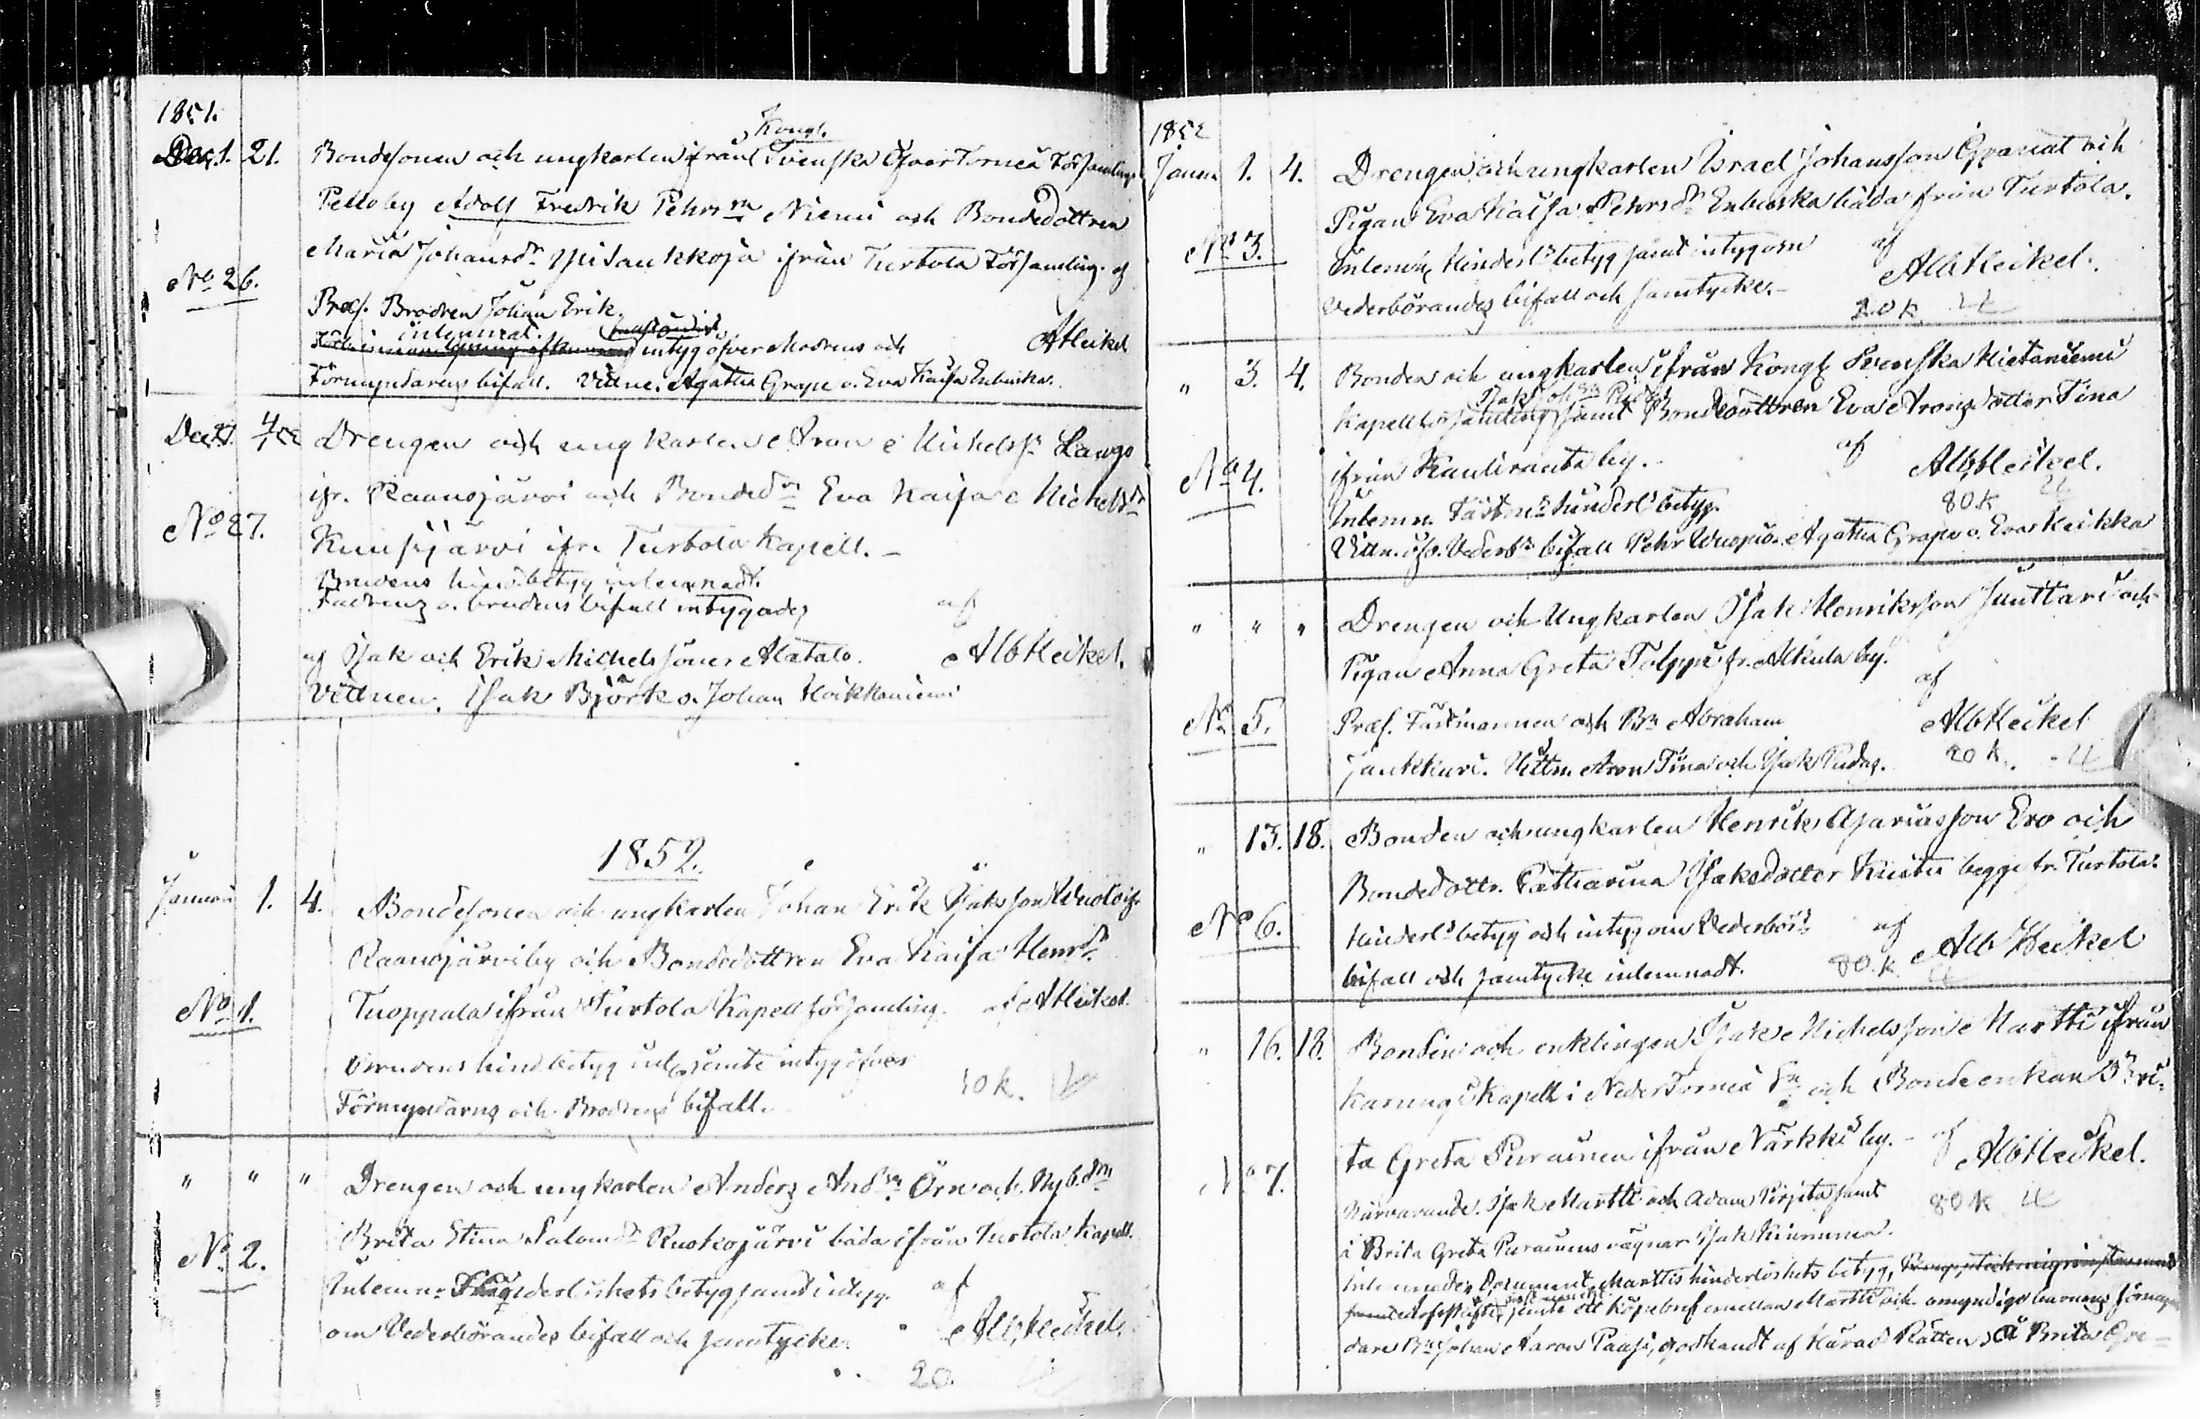 1851.
Dec. 21. Bondesonen och ungkarlen ifrån Kongl. Svenska ÖfverTorneå Församling
Pello by Adolf Fredrik Pehrsn Niemi och Bondedottren
Maria Johansdr ifrån Turtola Församling. af
No 26.
Præs. Brodren Johan Erik
inlemnat. intyg öfver Modrens och AHeikel
Förmyndarens bifall. Vittne. Agatha Grape o. Eva Kaisa Enbuska.
Dec. Drengen och ungkarlen Aron Michelss. Lango
ifr. Raanojärvi och Bondedn Eva Kaisa Michelsdr
No 27.
Kuusijärvi ifr. Turtola Kapell. –
Brudens hind.betyg inlemnadt.
Fadrens o. brudens bifall intygades af
af Isak och Erik Michelssöner Alatalo. AlbHeikel.
Vittnen. Isak Björk o. Johan Heikkaniemi
1852.
Januari 1. 4. Bondesonen och ungkarlen Johan Erik Isaksson ifr.
Raanojärvi by och Bondedottren Eva Kaisa Henrdr
No 1. Tuoppala ifrån Turtola Kapell församling. af AHeikel.
Brudens hind.betyg inl. jemte intyg öfver
Förmyndarens och Brodrens bifall. 10 k.
" " " Drengen och ungkarlen Anders Andsn Örn och Nyb.dn
Brita Stina Salomdr Ruskojärvi båda ifrån Turtola Kapell.
No 2.
Inlemn. hinderlöshets betyg samt intyg af
om Vederbörandes bifall och samtycke. AlbHeikel.
20.
1852
Januar 1. 4. Drengen och ungkarlen Israel Johansson Granat och
Pigan Eva Kaisa Pehrsdr Enbuska båda från Turtola.
No 3.
Inlemn. Hinderls betyg samt intyg om af
Vederbörandes bifall och samtycke. – AlbHeikel.
20 k
" 3. 4. Bonden och ungkarlen ifrån Kongl Svenska Hietaniemi
Kapellförsamling samt Bondedottren Eva Aronsdotter Tina
ifrån Kauliranta by. – af
No 4. AlbHeikel.
Inlemn. Fästmns hinderls betyg. 80 k
Vittn. öfv. Vederbs bifall Pehr Agatha Grape o. Eva Heikka
" " " Drengen och Ungkarlen Isak Henriksson Junttari och
Pigan Anna Greta Tolppi fr. Alkula by.
af
No 5. Præs. Fästmannen och Bn Abraham AlbHeikel
Junkkuri. Vittn. Aron Tina och Isak Pudas. 20 k.
" 13. 18. Bonden och ungkarlen Henrik Asariasson Ero och
Bondedottr. Catharina Isaksdotter begge fr. Turtola.
No 6.
Hinderls betyg och intyg om Vederbörs af
bifall och samtycke inlemnadt. 80. k. Alb Heikel
" 16. 18. Bonden och enklingen Isak Michelsson Martti ifrån
Karungi Kapell i NederTorneå Sn och Bondeenkan Bri-
ta Greta Purainen ifrån Närkki by. – af
No 7. AlbHeikel.
Närvarande. Isak Martti och Adam samt 80 k
i Brita Greta Purainens vägnar Isak Kinnunen.
inlemnades Document, Marttis hinderlöshets betyg,
jemte ett köpebref emellan Martti och omyndige barnens förmyn-
dare Bn Johan Aaron Paasi, godkandt af Härads Rätten, å Brita Gre-